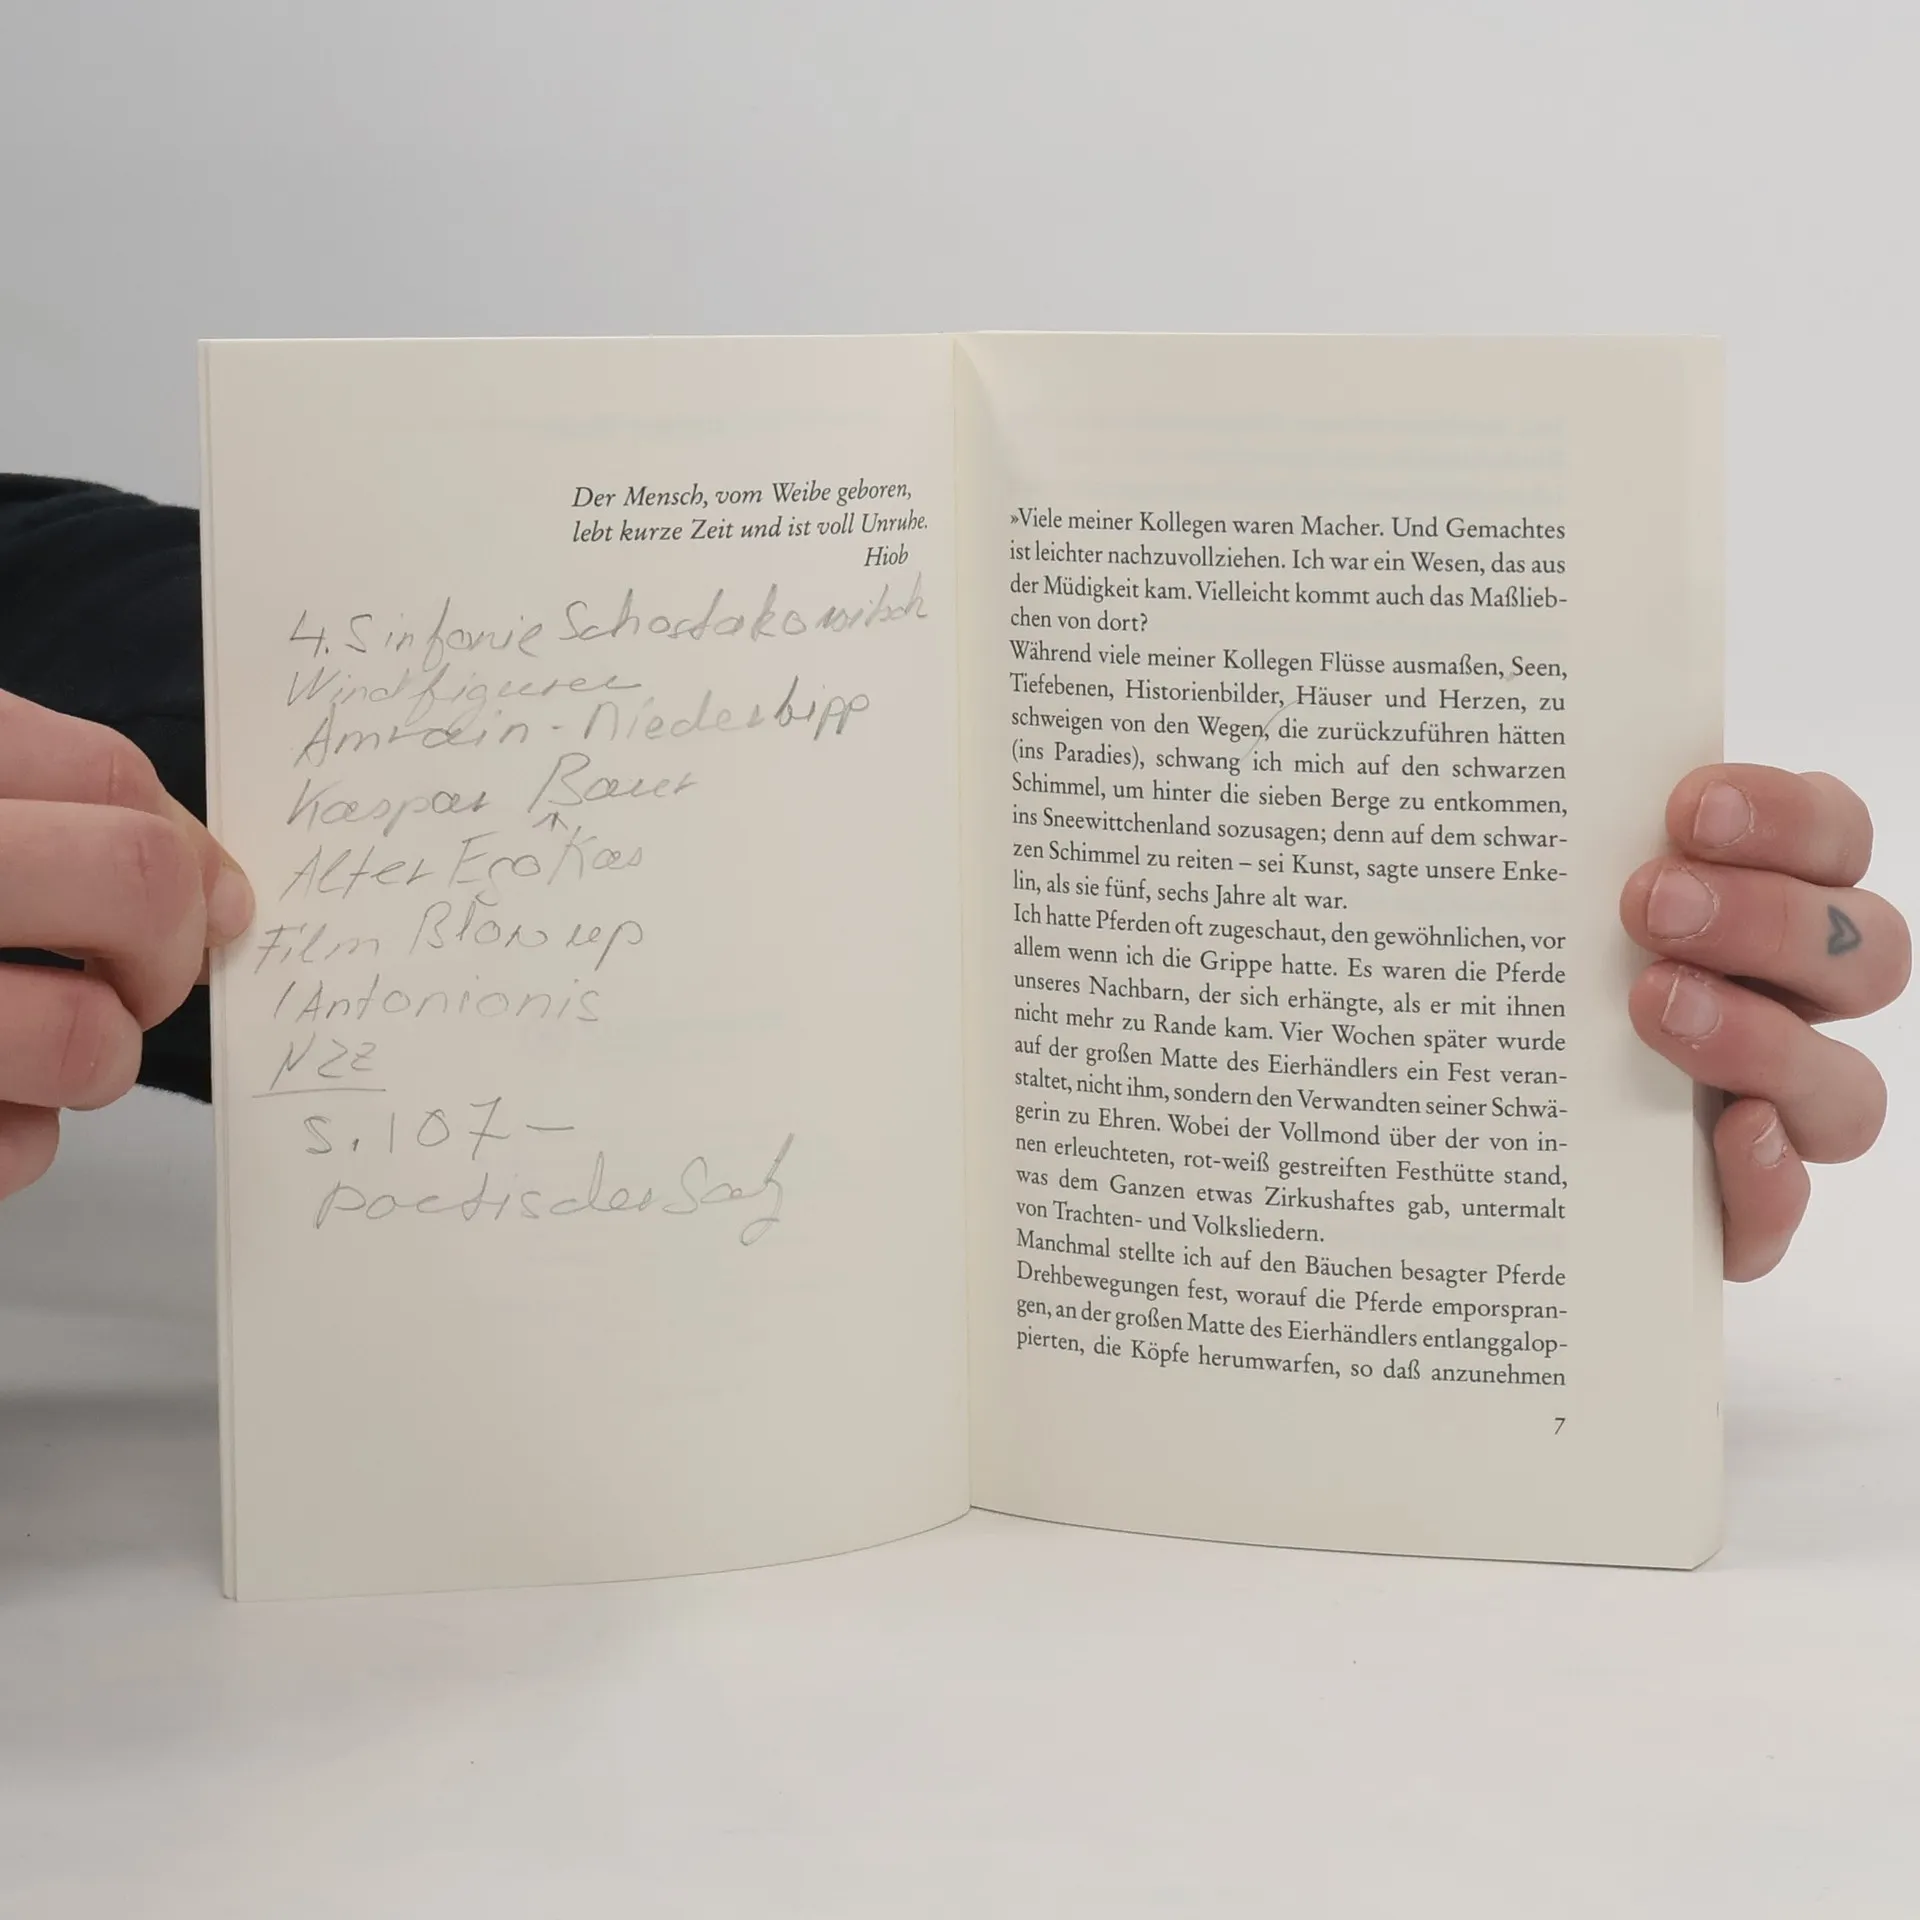 Der Mensch, vom Weibe geboren,
lebt kurze Zeit und ist voll Unruhe.
Hiob
4. Sinfonie Schostakowitsch
Windfiguren
Amrain - Niederbipp
Kaspar Baur
Alter Ego Kas
Film Blow up
/ Antonionis
NZZ
S. 107 –
poetischer Satz
»Viele meiner Kollegen waren Macher. Und Gemachtes
ist leichter nachzuvollziehen. Ich war ein Wesen, das aus
der Müdigkeit kam. Vielleicht kommt auch das Maßlieb-
chen von dort?
Während viele meiner Kollegen Flüsse ausmaßen, Seen,
Tiefebenen, Historienbilder, Häuser und Herzen, zu
schweigen von den Wegen, die zurückzuführen hätten
(ins Paradies), schwang ich mich auf den schwarzen
Schimmel, um hinter die sieben Berge zu entkommen,
ins Sneewittchenland sozusagen; denn auf dem schwar-
zen Schimmel zu reiten – sei Kunst, sagte unsere Enke-
lin, als sie fünf, sechs Jahre alt war.
Ich hatte Pferden oft zugeschaut, den gewöhnlichen, vor
allem wenn ich die Grippe hatte. Es waren die Pferde
unseres Nachbarn, der sich erhängte, als er mit ihnen
nicht mehr zu Rande kam. Vier Wochen später wurde
auf der großen Matte des Eierhändlers ein Fest veran-
staltet, nicht ihm, sondern den Verwandten seiner Schwä-
gerin zu Ehren. Wobei der Vollmond über der von in-
nen erleuchteten, rot-weiß gestreiften Festhütte stand,
was dem Ganzen etwas Zirkushaftes gab, untermalt
von Trachten- und Volksliedern.
Manchmal stellte ich auf den Bäuchen besagter Pferde
Drehbewegungen fest, worauf die Pferde emporspran-
gen, an der großen Matte des Eierhändlers entlanggalop-
pierten, die Köpfe herumwarfen, so daß anzunehmen
7